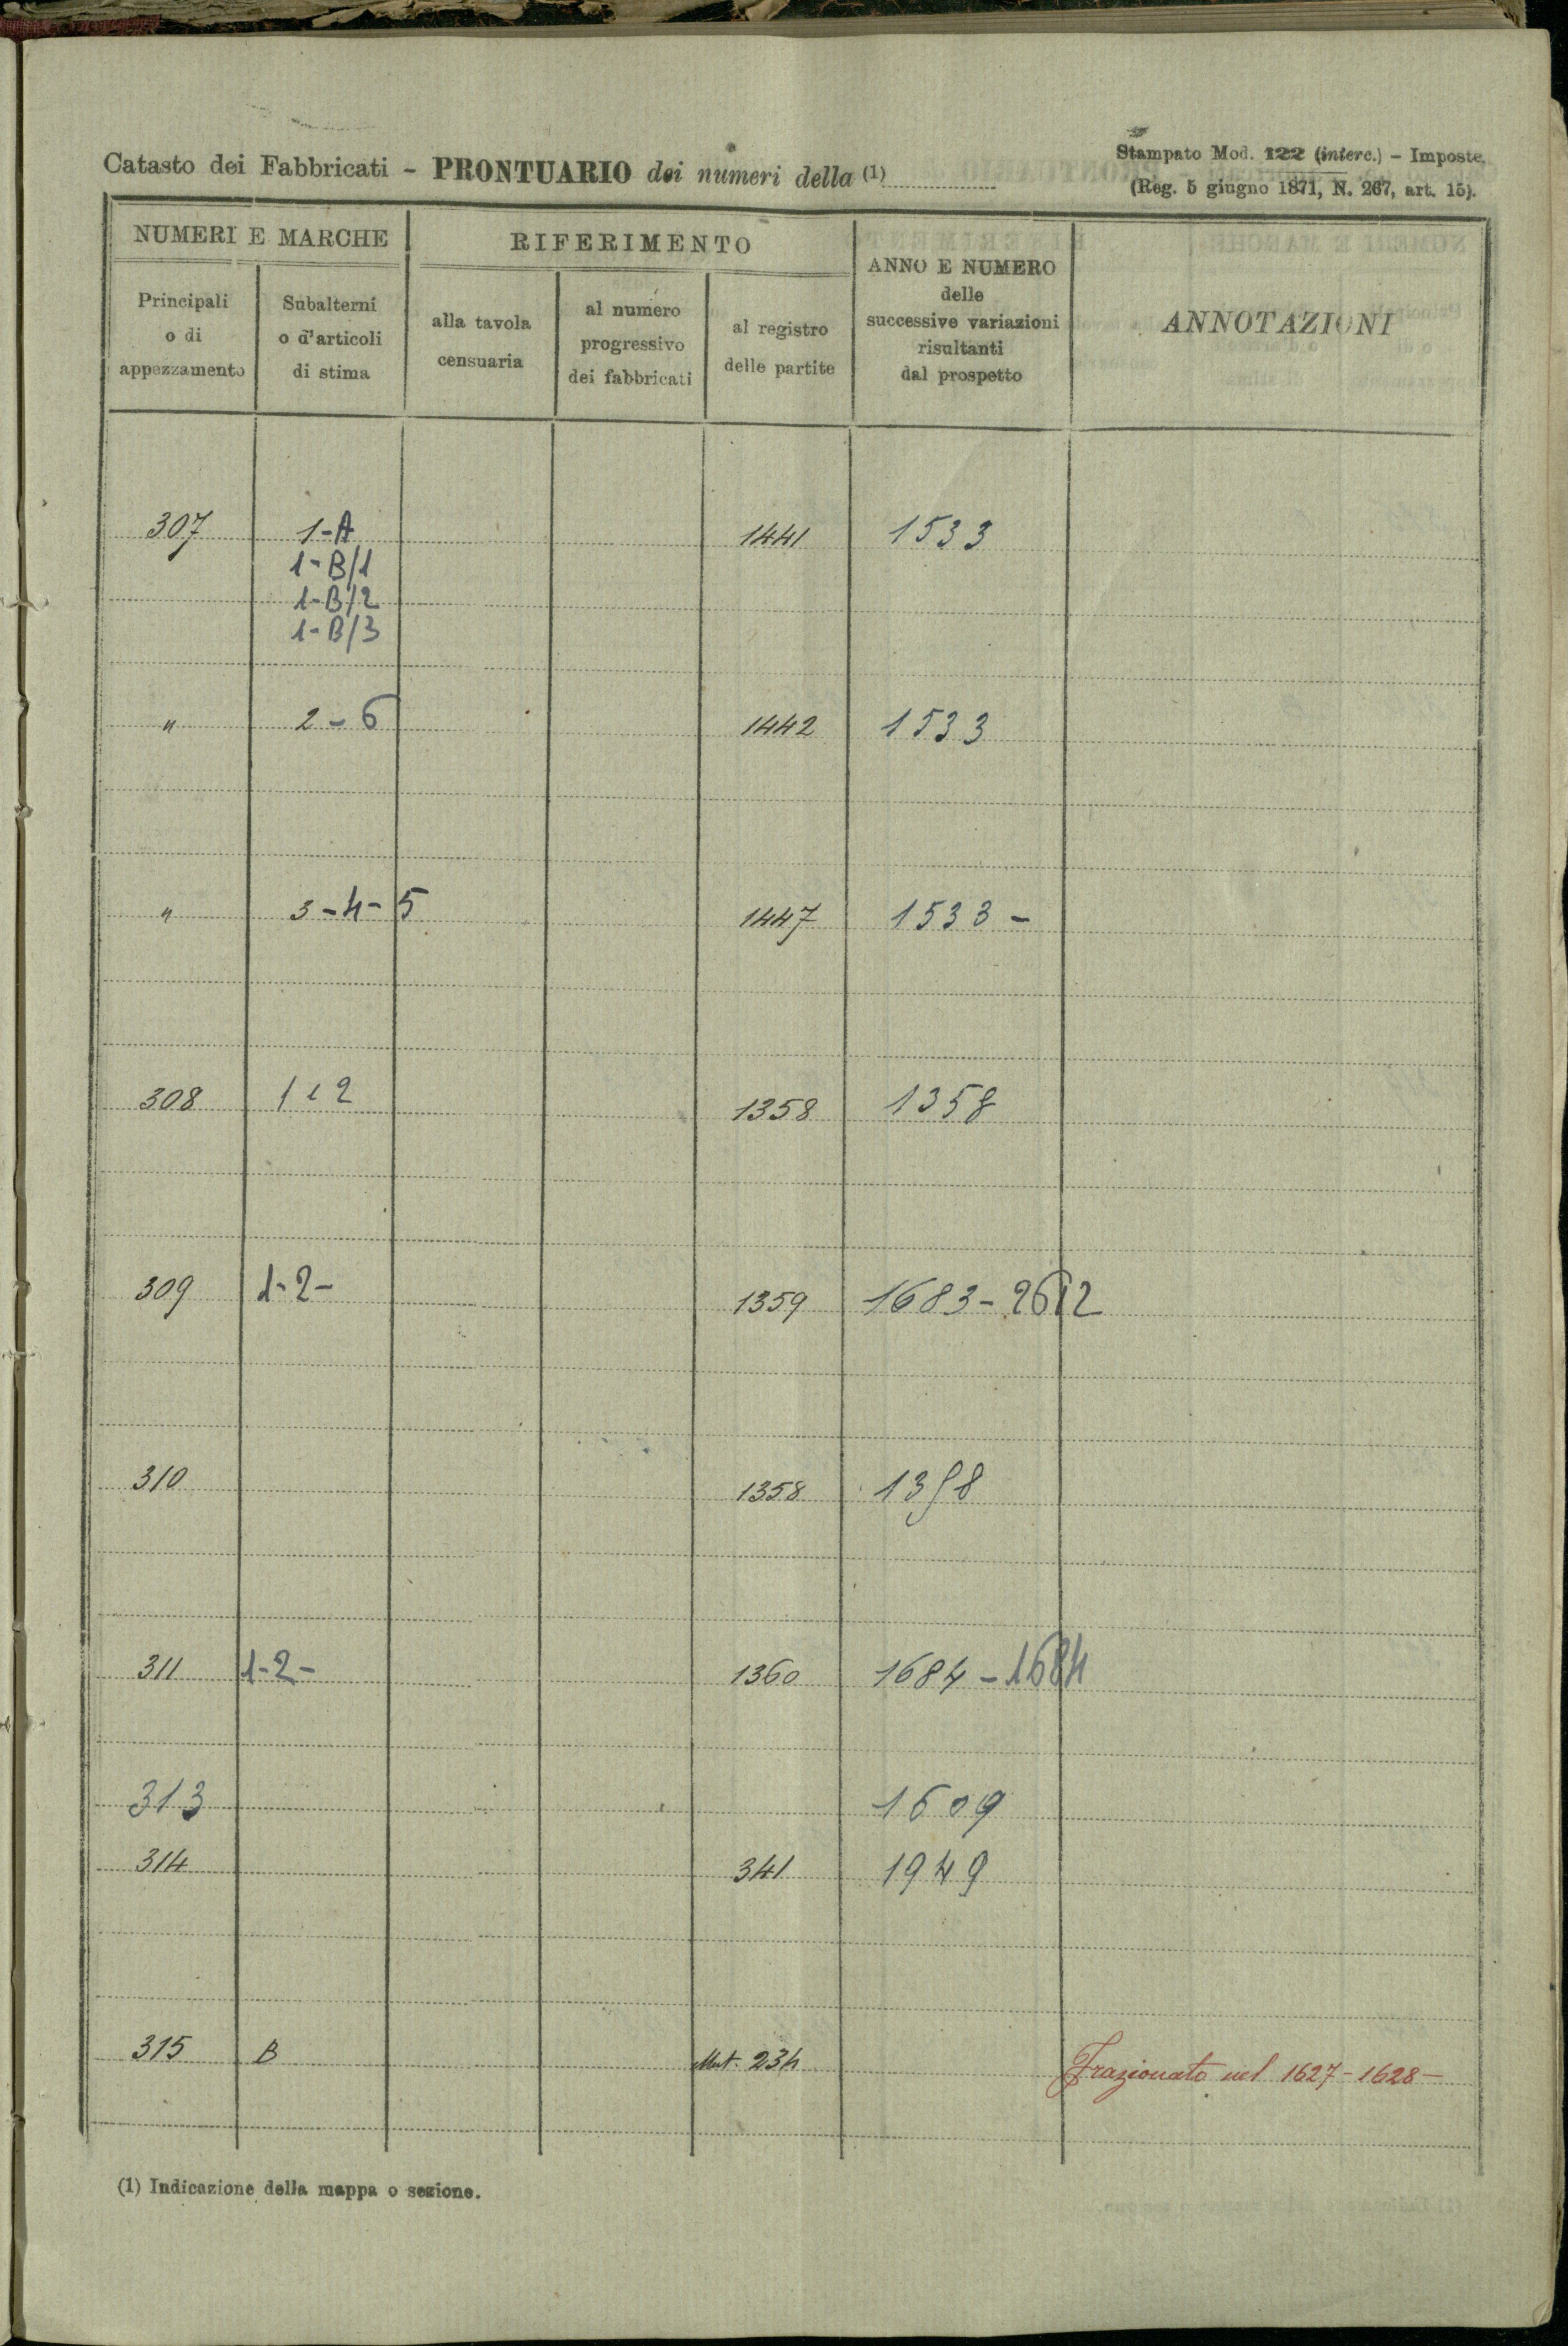 Catasto dei Fabbricati - PRONTUARIO dei numeri della (1)
Stampato Mod. 122 (interc.) - Imposte.
(Reg. 5 giugno 1871, N. 267, art. 15).
NUMERI E MARCHE
RIFERIMENTO
Principali
o di
appezzamento
Subalterni
o d'articoli
di stima
alla tavola
censuaria
al numero
progressivo
dei fabbricati
al registro
delle partite
ANNO E NUMERO
delle
successive variazioni
risultanti
dal prospetto
ANNOTAZIONI
307 1-A 1441 1533
1-B/1
1-B/2
1-B/3
" 2-6 1442 1533
" 3-4-5 1447 1533-
308 1 e 2 1358 1358
309 1-2- 1359 1683-2612
310 1358 1358
311 1-2- 1360 1684-1684
313 1609
314 341 1949
315 B Mut. 234 Frazionato nel 1627-1628-
(1) Indicazione della mappa o sezione.